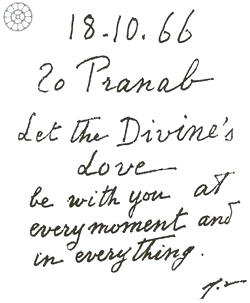 18.10.66
To Pranab
Let the Divine's
Love
be with you at
every moment and
in everything.